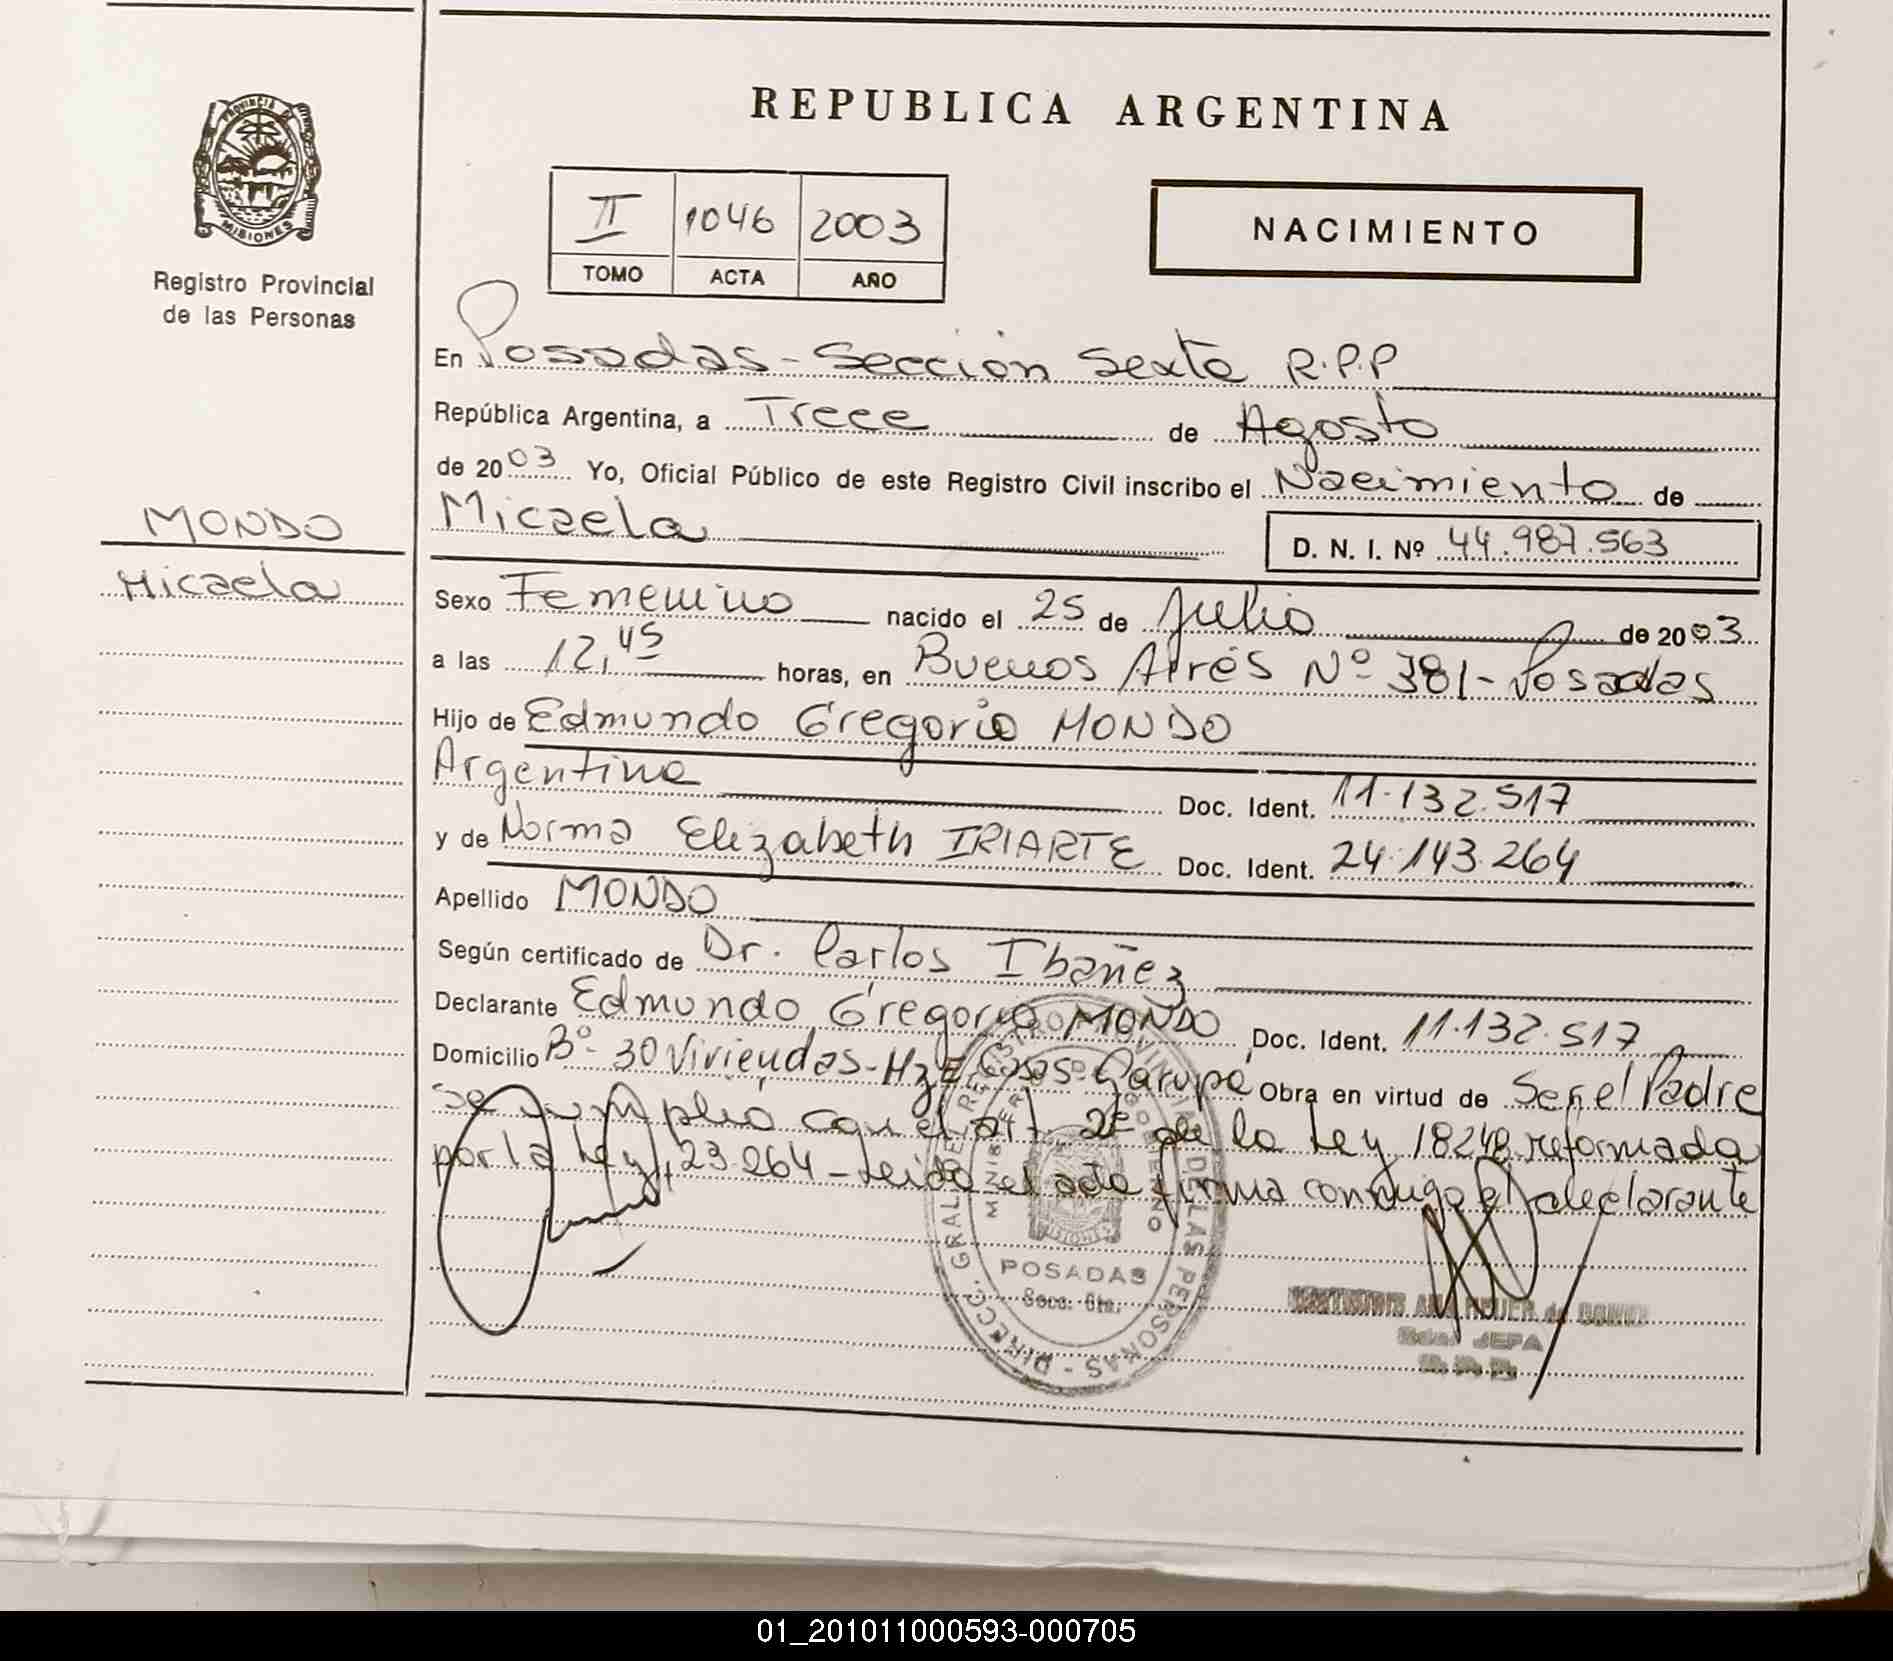 REPUBLICA ARGENTINA
PROVINCIA
MISIONES
Registro Provincial
de las Personas
II 1046 2003
TOMO ACTA AÑO
NACIMIENTO
En Posadas - Sección Sexta R.P.P
República Argentina, a Trece de Agosto
de 2003 Yo, Oficial Público de este Registro Civil inscribo el Nacimiento de
Micaela D. N. I. Nº 44.987.563
MONDO
Micaela
Sexo Femenino nacido el 25 de Julio de 2003
a las 12,45 horas, en Buenos Aires Nº 381 - Posadas
Hijo de Edmundo Gregorio MONDO
Argentina Doc. Ident. 11.132.517
y de Norma Elizabeth IRIARTE Doc. Ident. 24.143.264
Apellido MONDO
Según certificado de Dr. Carlos Ibañez
Declarante Edmundo Gregorio MONDO Doc. Ident. 11.132.517
Domicilio Bº 30 Viviendas - Mz E Garupá Obra en virtud de Ser el Padre
se cumplió con el art 2º de la Ley 18248 reformada
por la Ley 23.264 - Leida el acta firma conmigo el declarante
DIRECC. GRAL. DE REGISTRO PROVINCIAL DE LAS PERSONAS
MINISTERIO DE GOBIERNO
MISIONES
POSADAS
Secc. 6ta.
JEFA
01_201011000593-000705